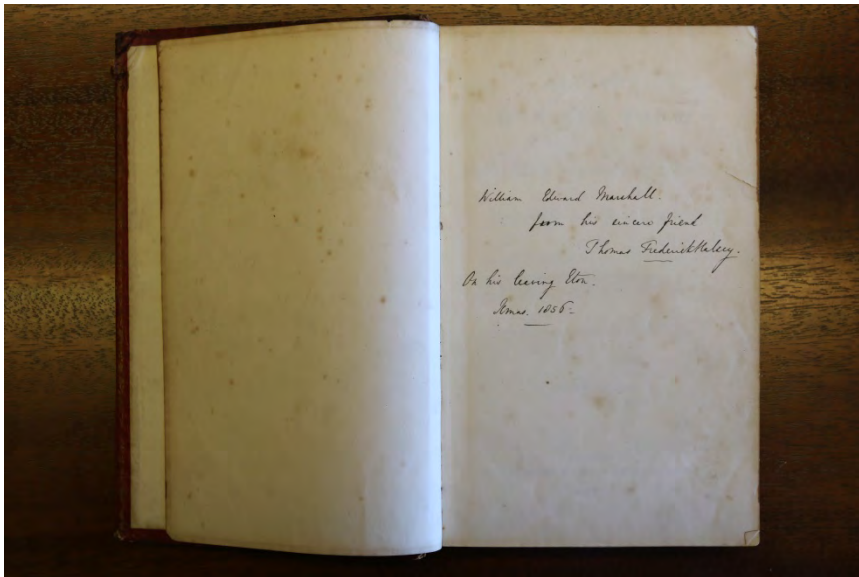 William Edward Marshall.
from his sincere friend
Thomas Frederick Halsey.
On his leaving Eton.
Xmas. 1856.